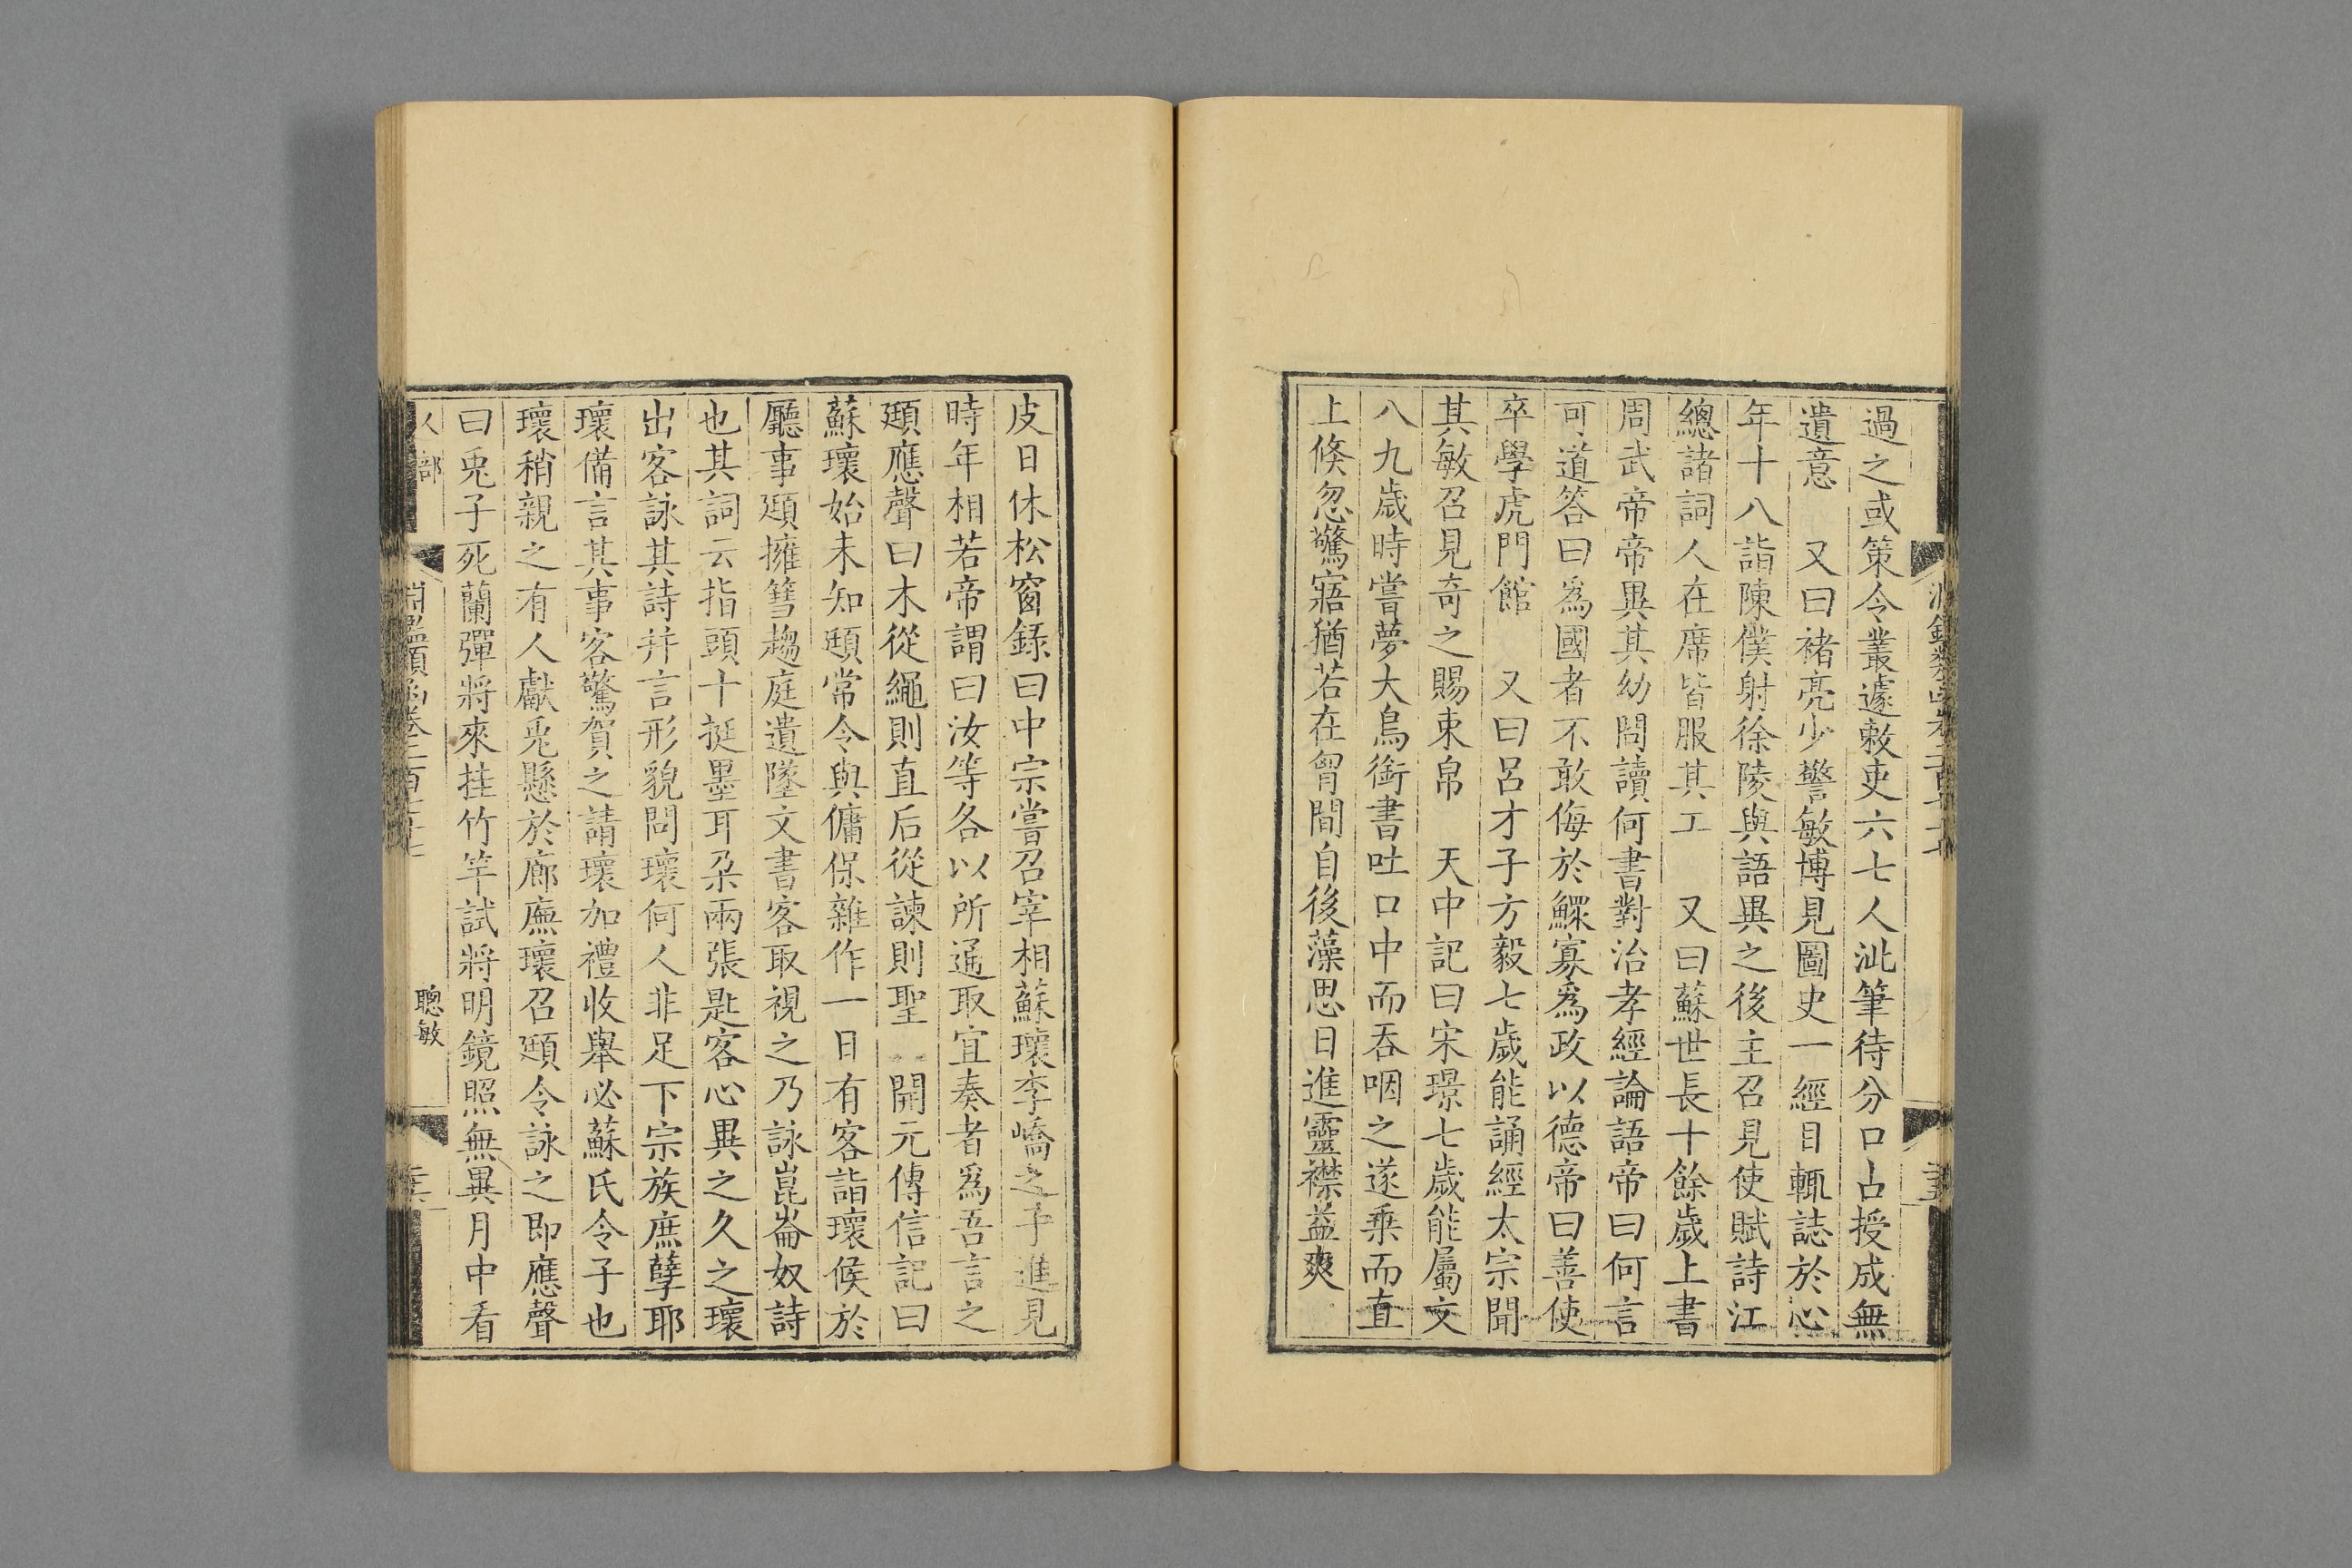 過之或策令叢遽敕吏六七人泚筆待分口占授成無
遺意　又曰褚亮少警敏博見圖史一經目輒誌於心
年十八詣陳僕射徐陵與語異之後主召見使賦詩江
總諸詞人在席皆服其工　又曰蘇世長十餘歲上書
周武帝帝異其幼問讀何書對治孝經論語帝曰何言
可道答曰爲國者不敢侮於鰥寡爲政以德帝曰善使
卒學虎門館　又曰呂才子方毅七歲能誦經太宗聞
其敏召見奇之賜束帛　天中記曰宋璟七歲能屬文
八九歲時嘗夢大鳥銜書吐口中而吞咽之遂乗而直
上倐忽驚寤猶若在胷間自後藻思日進靈襟益爽
皮日休松窗録曰中宗嘗召宰相蘇瓌李嶠之子進見
時年相若帝謂曰汝等各以所通取宜奏者爲吾言之
頲應聲曰木從繩則直后從諫則聖　開元傳信記曰
蘇瓌始未知頲常令與傭保雜作一日有客詣瓌候於
廳事頲擁篲趨庭遺墜文書客取視之乃詠崑崙奴詩
也其詞云指頭十挺墨耳朵兩張匙客心異之久之瓌
出客詠其詩并言形貌問瓌何人非足下宗族庶孽耶
瓌備言其事客驚賀之請瓌加禮收舉必蘇氏令子也
瓌稍親之有人獻兎懸於廊廡瓌召頲令詠之即應聲
曰兎子死蘭彈將來挂竹竿試將明鏡照無異月中看
人部
淵鑑類函卷二百七十七
聰敏